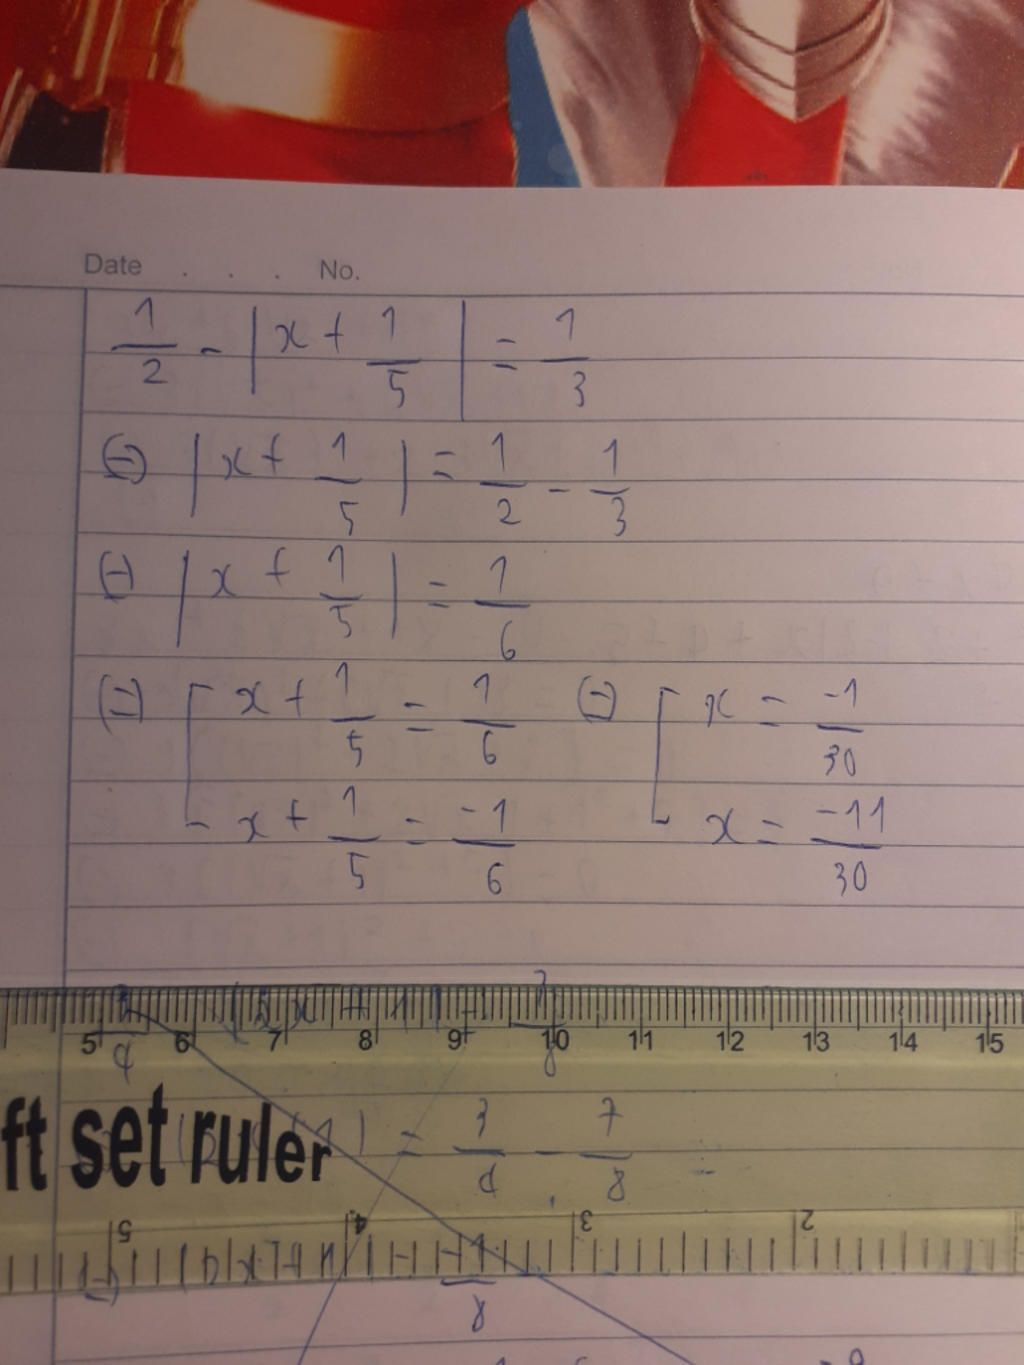 Date . . . No.
1/2 - |x + 1/5| = 1/3
(=) |x + 1/5| = 1/2 - 1/3
(=) |x + 1/5| = 1/6
(=) [ x + 1/5 = 1/6 (=) [ x = -1/30
x + 1/5 = -1/6 x = -11/30
5 6 7 8 9 10 11 12 13 14 15
ft set ruler
= 3/4 - 7/8
5 4 3 2